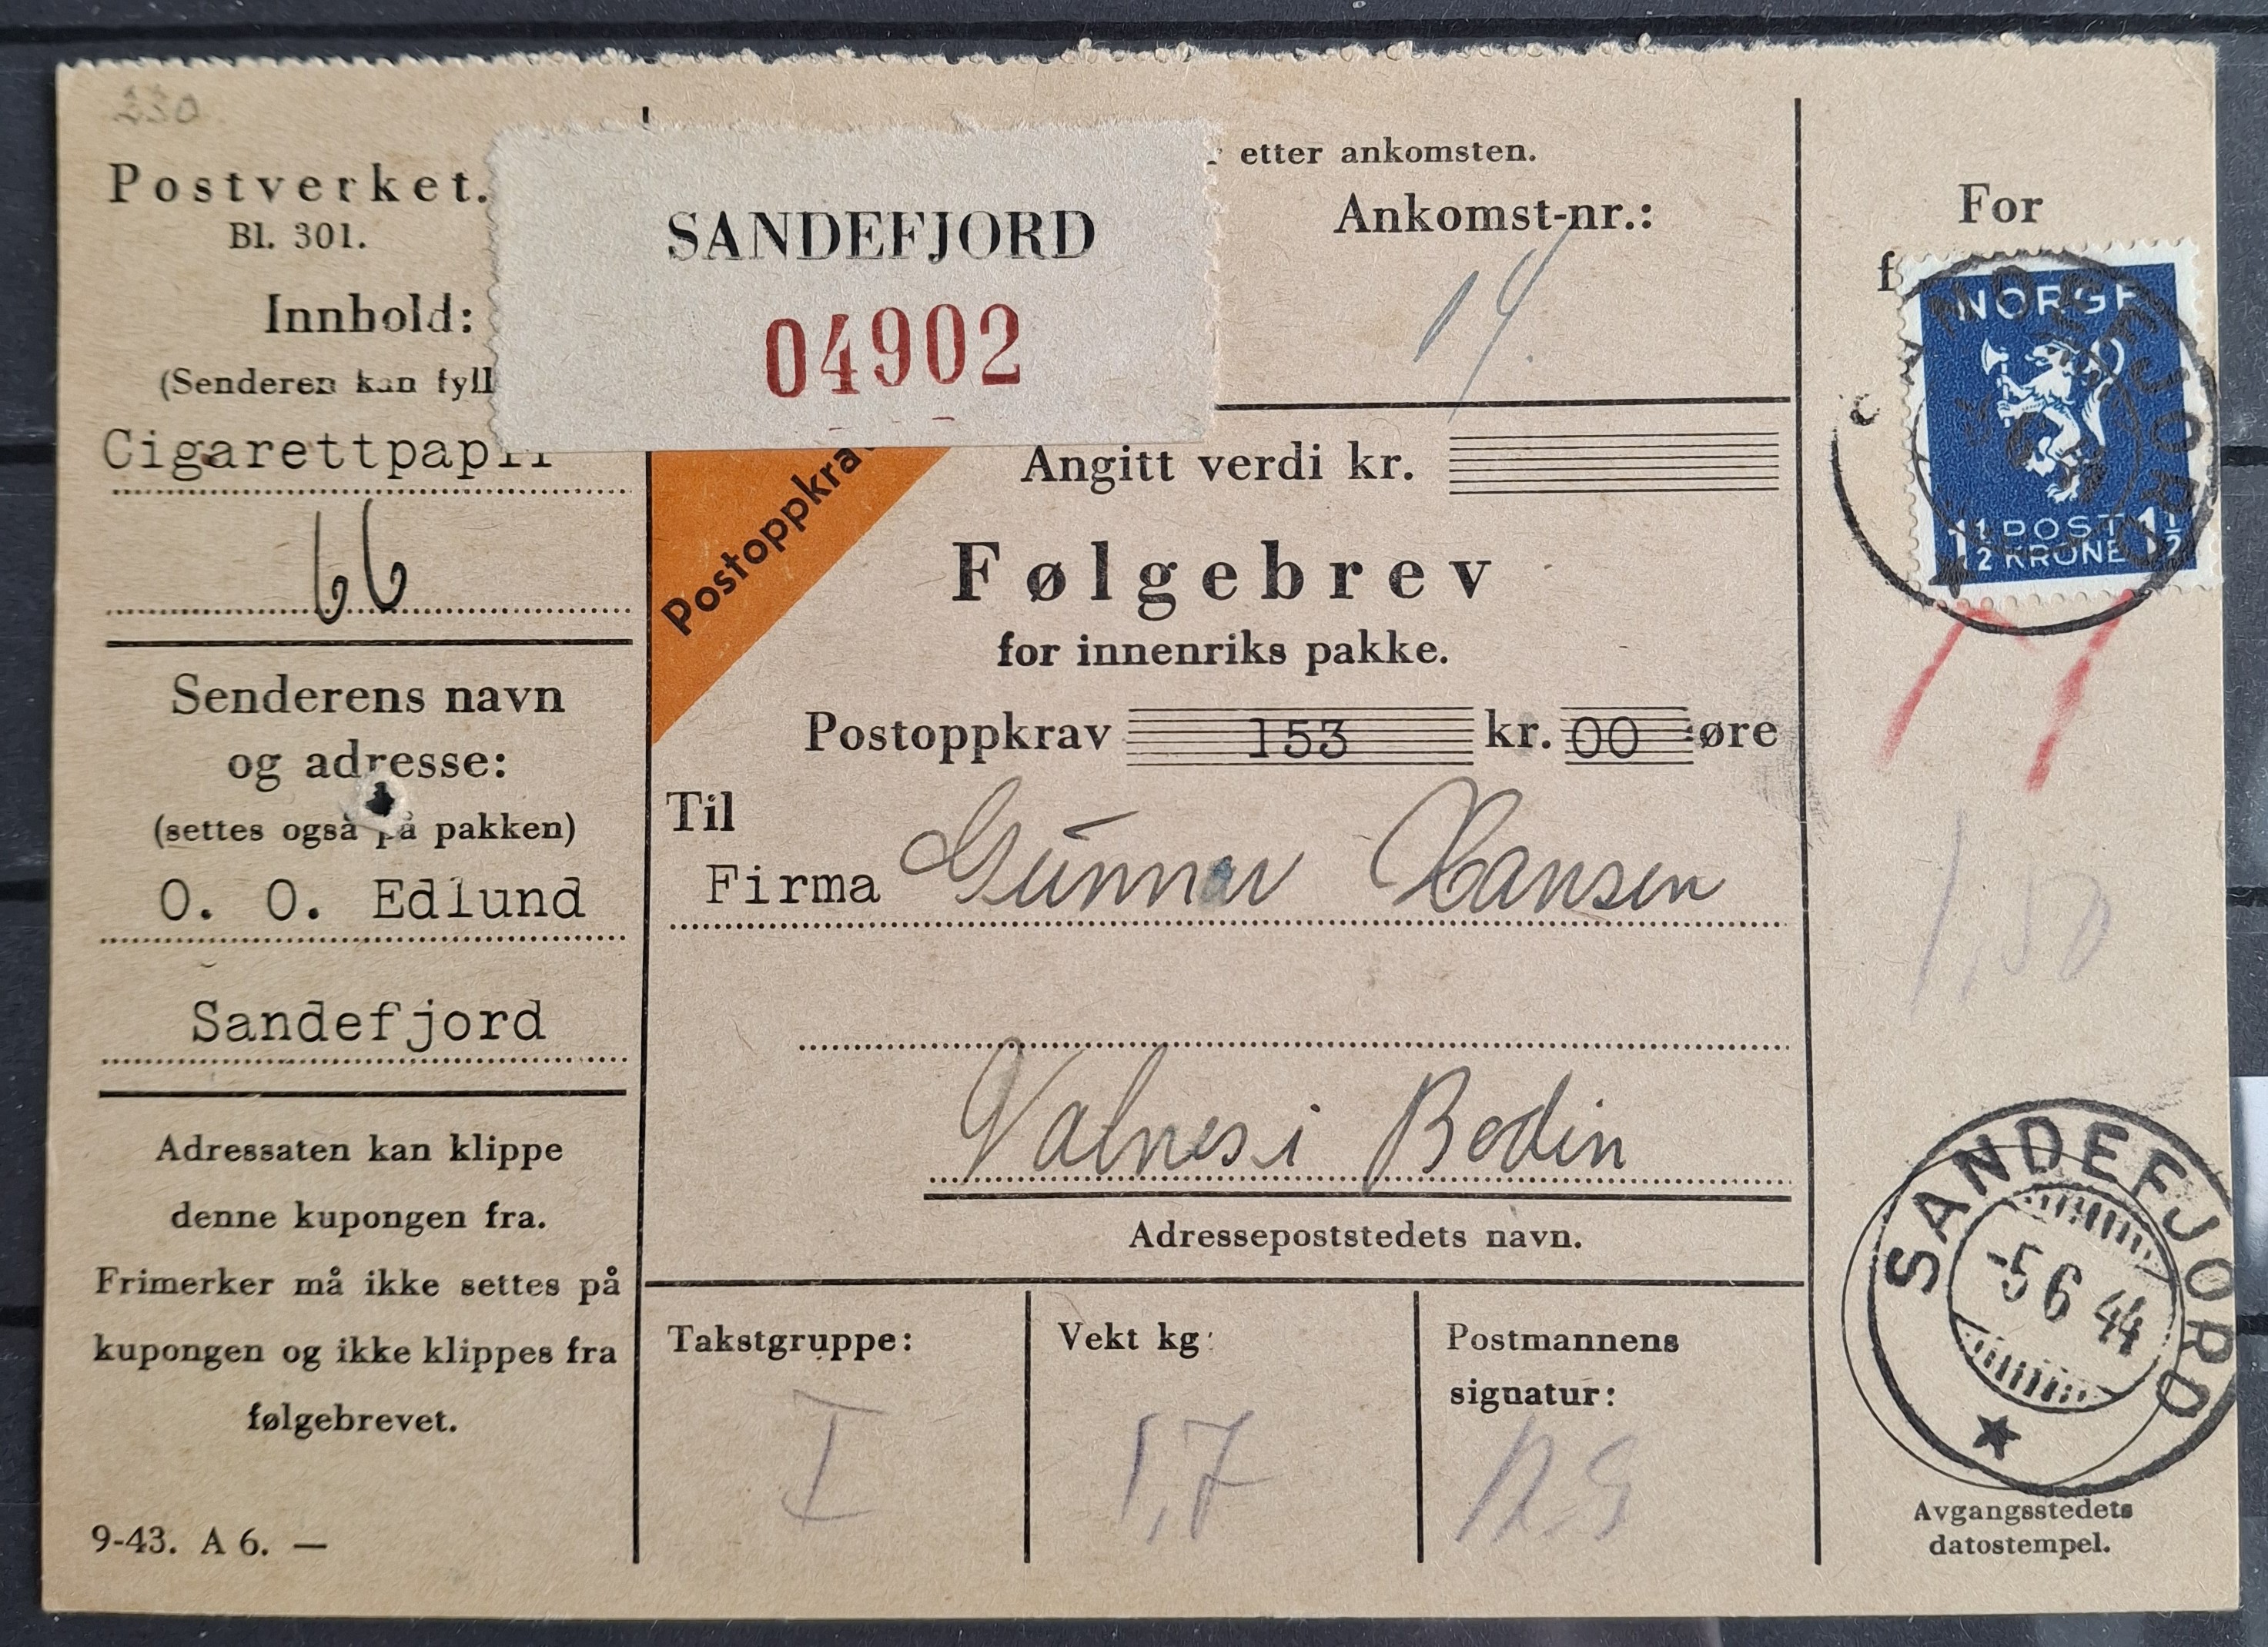 230
Postverket.
Bl. 301.
Innhold:
(Senderen kan fyll
Cigarettpapir
66
Senderens navn
og adresse:
(settes også på pakken)
O. O. Edlund
Sandefjord
Adressaten kan klippe
denne kupongen fra.
Frimerker må ikke settes på
kupongen og ikke klippes fra
følgebrevet.
9-43. A 6. —
SANDEFJORD
04902
etter ankomsten.
Ankomst-nr.:
14.
Postoppkrav
Angitt verdi kr.
Følgebrev
for innenriks pakke.
Postoppkrav 153 kr. 00 øre
Til
Firma Gunnar Hansen
Valnes i Bodin
Adressepoststedets navn.
Takstgruppe:
I
Vekt kg
1,7
Postmannens
signatur:
For
f
NORGE
1½ POST 1½
KRONE
SANDEFJORD
1,50
SANDEFJORD
-5 6 44
Avgangsstedets
datostempel.